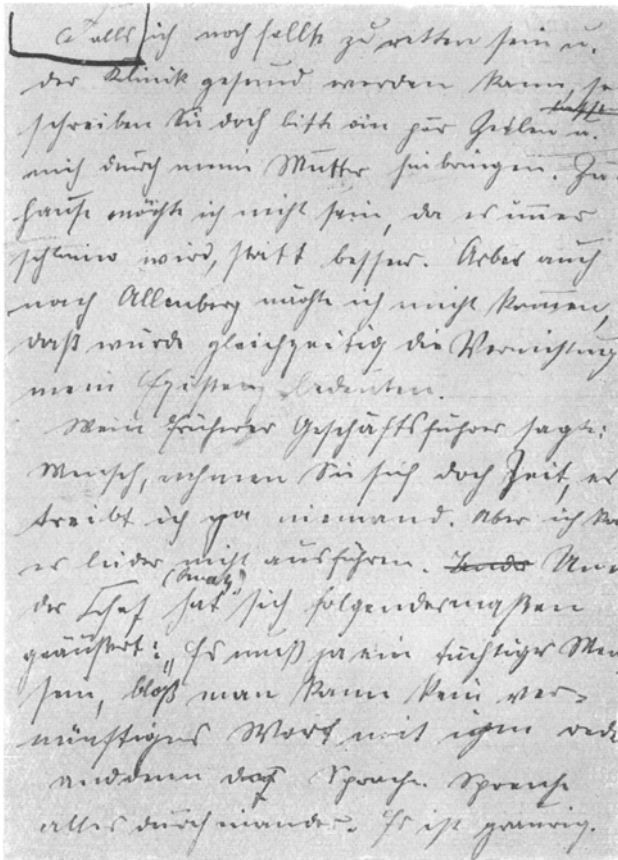 Falls ich noch sollte zu retten sein u.
der Klinik gesund werden kann, so
schreiben Sie doch bitte ein paar Zeilen u.
mich durch mein Mutter hinbringen. Zu
hause möchte ich nicht sein, da es immer
schlimmer wird, statt besser. Aber auch
nach Allenberg möchte ich nicht kommen,
daß würde gleichzeitig die Vernichtung
mein Existenz bedeuten.
Mein früherer Geschäftsführer sagte:
Mensch, nehmen Sie sich doch Zeit, es
treibt ich ja niemand. Aber ich
es leider nicht ausführen.
der Chef hat sich folgendermaßen
geäußert: „Es muß ja ein tüchtiger
sein, bloß man kann kein ver=
nünftiges Wort mit ihm
Sprache
alles durcheinander. Es ist traurig.